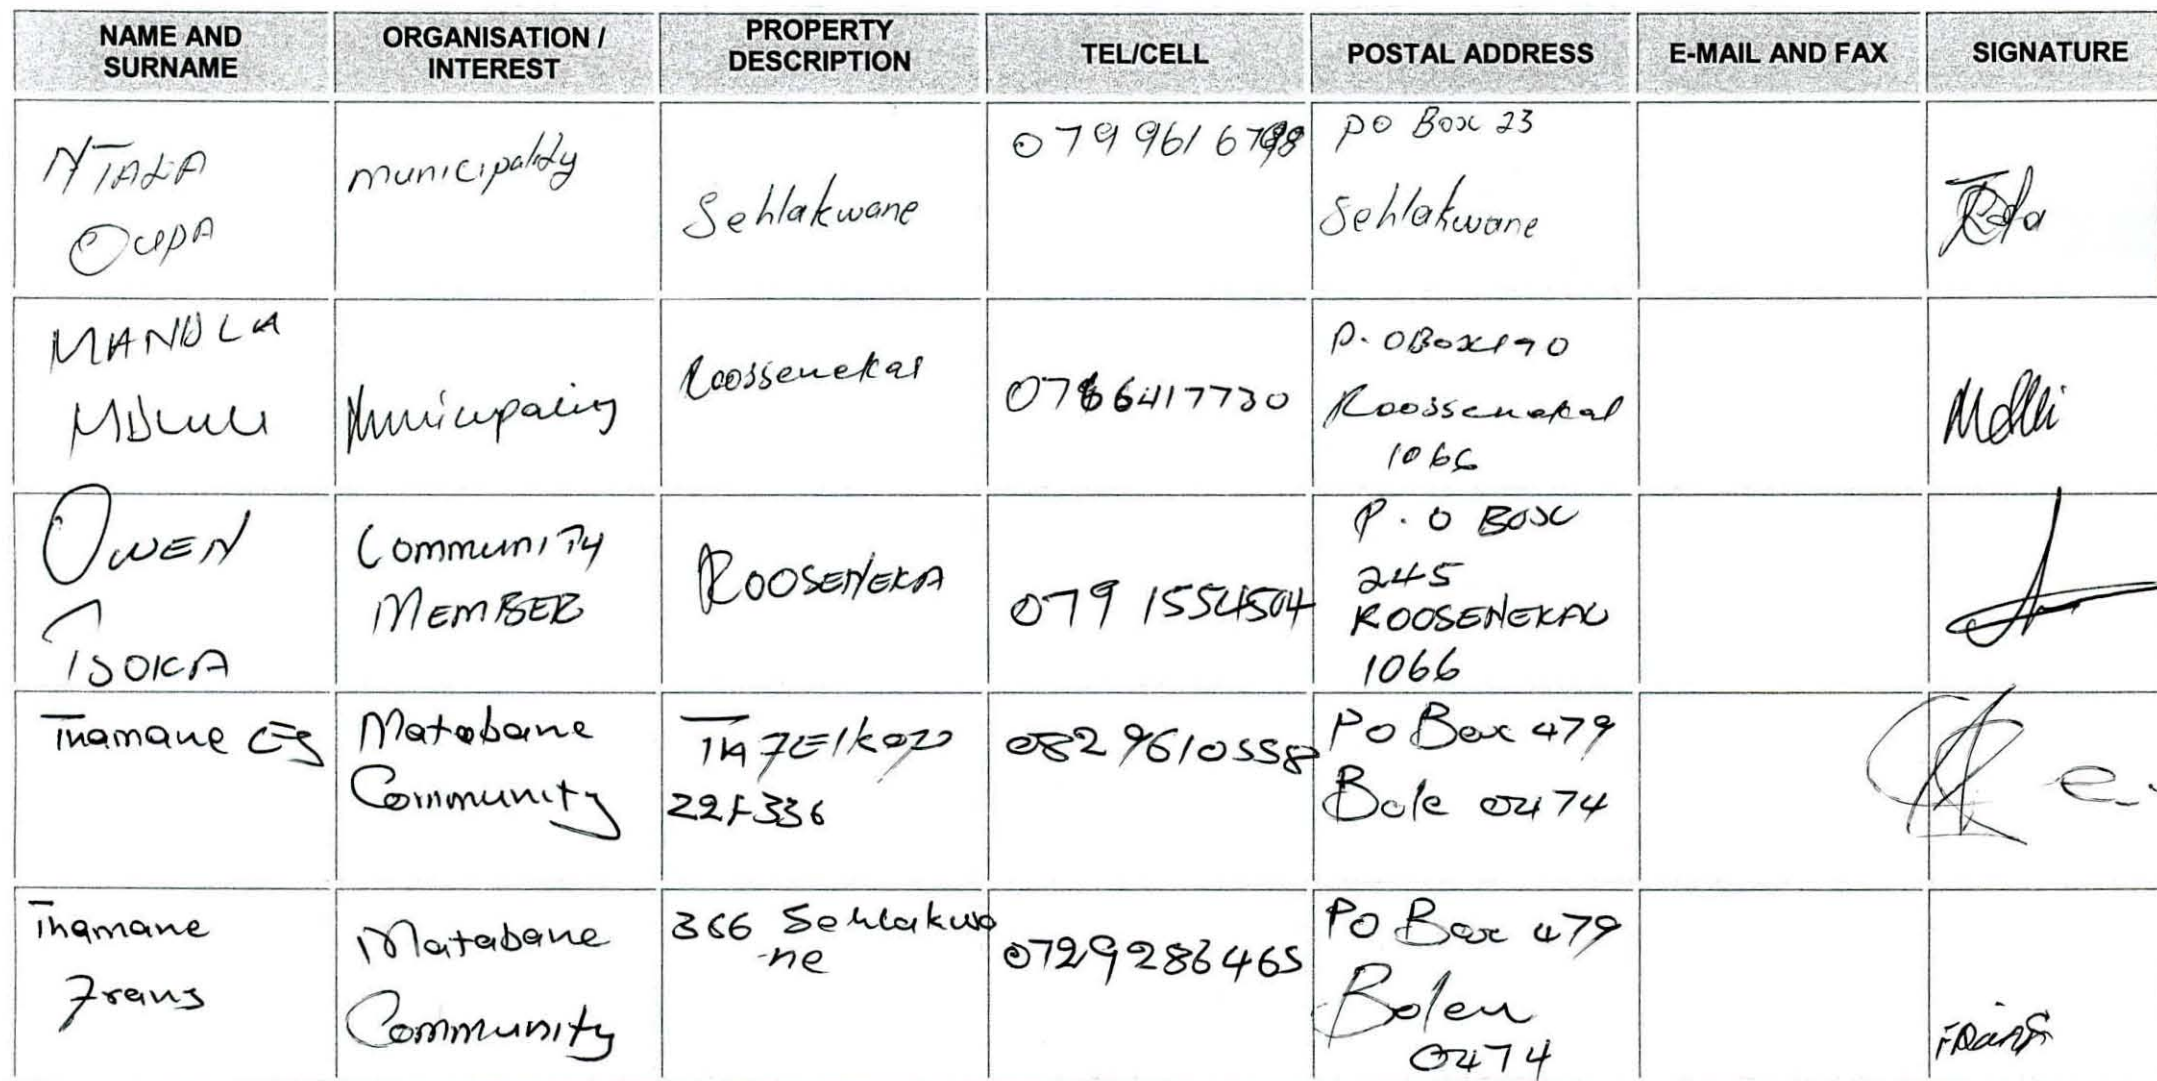 NAME AND SURNAME
ORGANISATION / INTEREST
PROPERTY DESCRIPTION
TEL/CELL
POSTAL ADDRESS
E-MAIL AND FAX
SIGNATURE
NTALA
OUPA
municipality
Sehlakwane
PO Box 23
Sehlakwane
MANDLA
MDLULI
Municipality
Roossenekal
P.O Box 190
Roossenekal
1066
OWEN
TSOKA
COMMUNITY
MEMBER
ROOSENEKA
079 1554504
P.O BOX
245
ROOSENEKAL
1066
Thamane
Matabane
Community
0829610558
PO Box 479
0474
Thamane
Frans
Matabane
Community
366 Sehlakwa
-ne
0729286465
PO Box 479
Bolen
0474